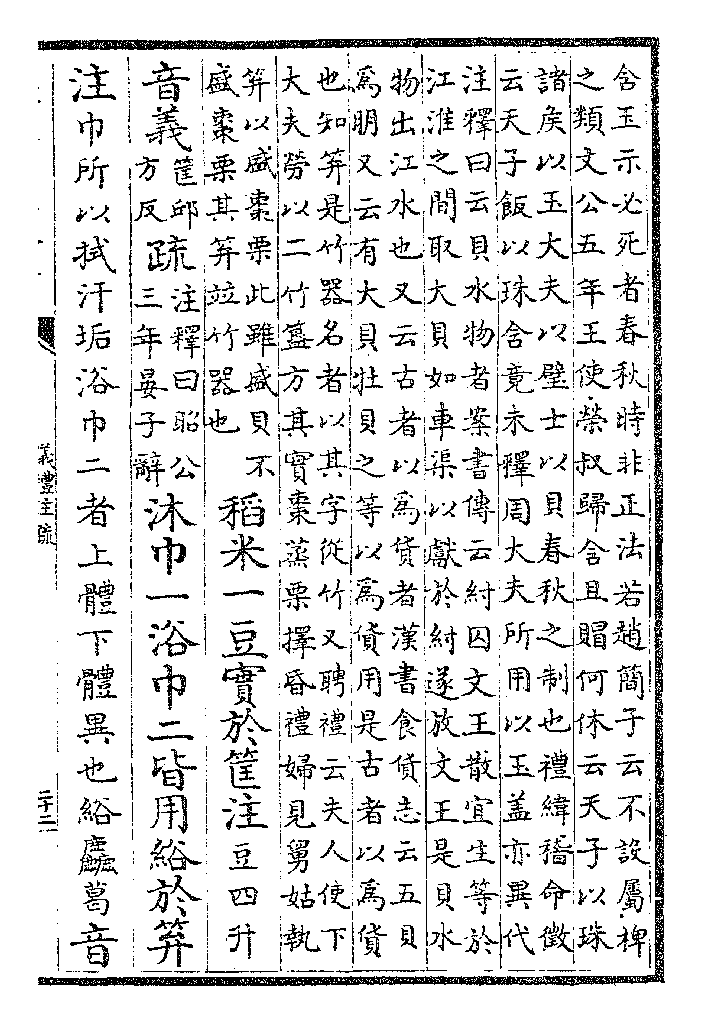 含玉示必死者春秋時非正法若趙簡子云不設屬椑
之類文公五年王使榮叔歸含且賵何休云天子以珠
諸侯以玉大夫以璧士以貝春秋之制也禮緯稽命徵
云天子飯以珠含竟未釋周大夫所用以玉盖亦異代
注釋曰云貝水物者案書傳云紂囚文王散宜生等於
江淮之間取大貝如車渠以獻於紂遂放文王是貝水
物出江水也又云古者以爲貨者漢書食貨志云五貝
爲明又云有大貝牡貝之等以爲貨用是古者以爲貨
也知笲是竹器名者以其字從竹又聘禮云夫人使下
大夫勞以二竹簋方其實棗蒸栗擇昏禮婦見舅姑執
笲以盛棗栗此雖盛貝不
盛棗栗其笲竝竹器也
稻米一豆實於筐注豆四升
音義筐邱方反疏注釋曰昭公三年晏子辭沐巾一浴巾二皆用綌於笲
注巾所以拭汗垢浴巾二者上體下體異也綌麤葛音
儀禮注疏
二十二